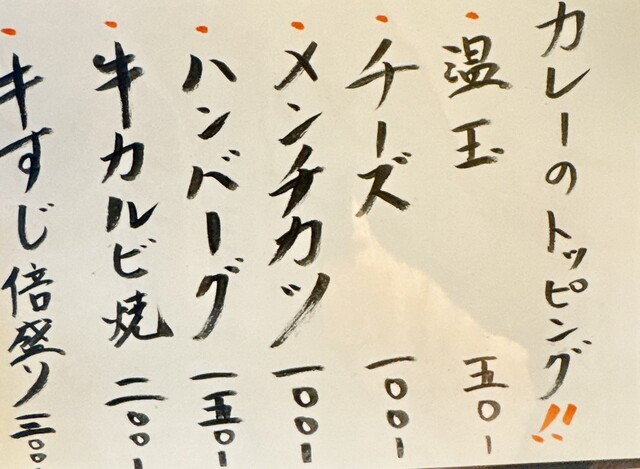 カレーのトッピング!!
温玉 五〇ー
チーズ 一〇〇ー
メンチカツ 一〇〇ー
ハンバーグ 一五〇ー
牛カルビ焼 二〇〇ー
牛すじ倍盛り 三〇〇ー